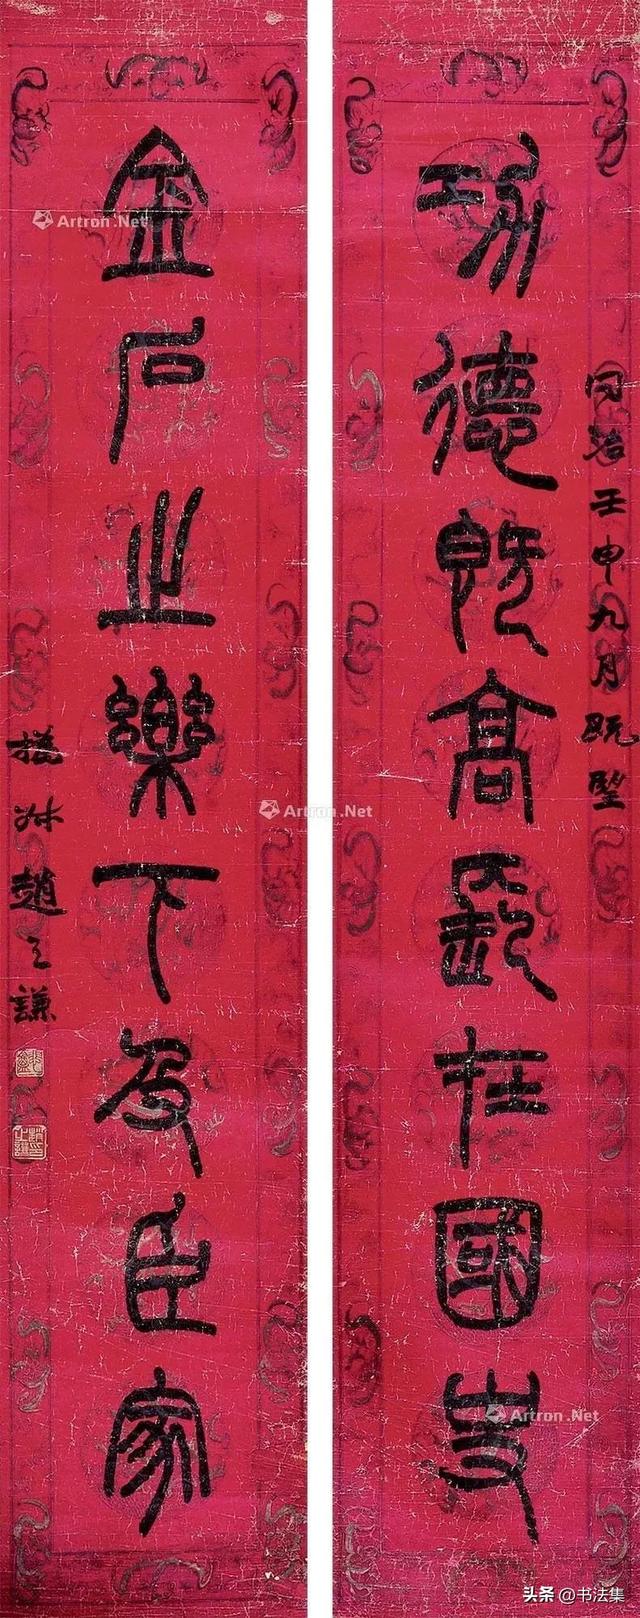 同治壬申九月既望
功德既高在國史
金石之樂下及臣家
撝叔趙之謙
Artron.Net
Artron.Net
Artron.Net
头条 @书法集